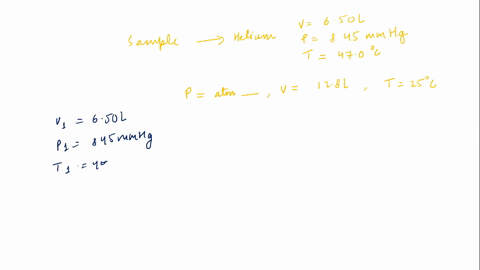 Sample → Helium
V = 6.50L
P = 845 mmHg
T = 47.0 °C
P = atm __ , V = 12.8L , T = 25°C
V1 = 6.50L
P1 = 845mmHg
T1 = 4